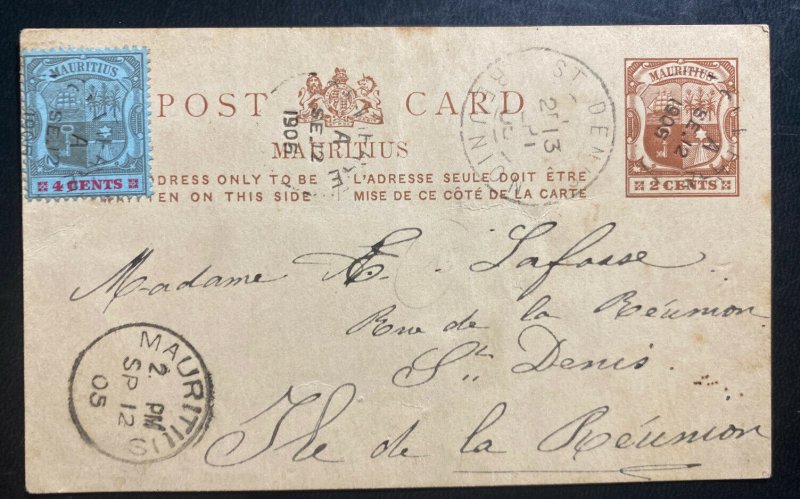 MAURITIUS
4 CENTS
A
SE.12
POST CARD
MAURITIUS
DRESS ONLY TO BE
EN ON THIS SIDE
L'ADRESSE SEULE DOIT ÊTRE
MISE DE CE CÔTÉ DE LA CARTE
A
SE.12
1905
ST DEN
13
REUNION
MAURITIUS
2 CENTS
A
SE.12
1905
Madame E. Lafosse
Rue de la Réunion
St Denis
Ile de la Réunion
MAURITIUS
2. PM
SP 12
05